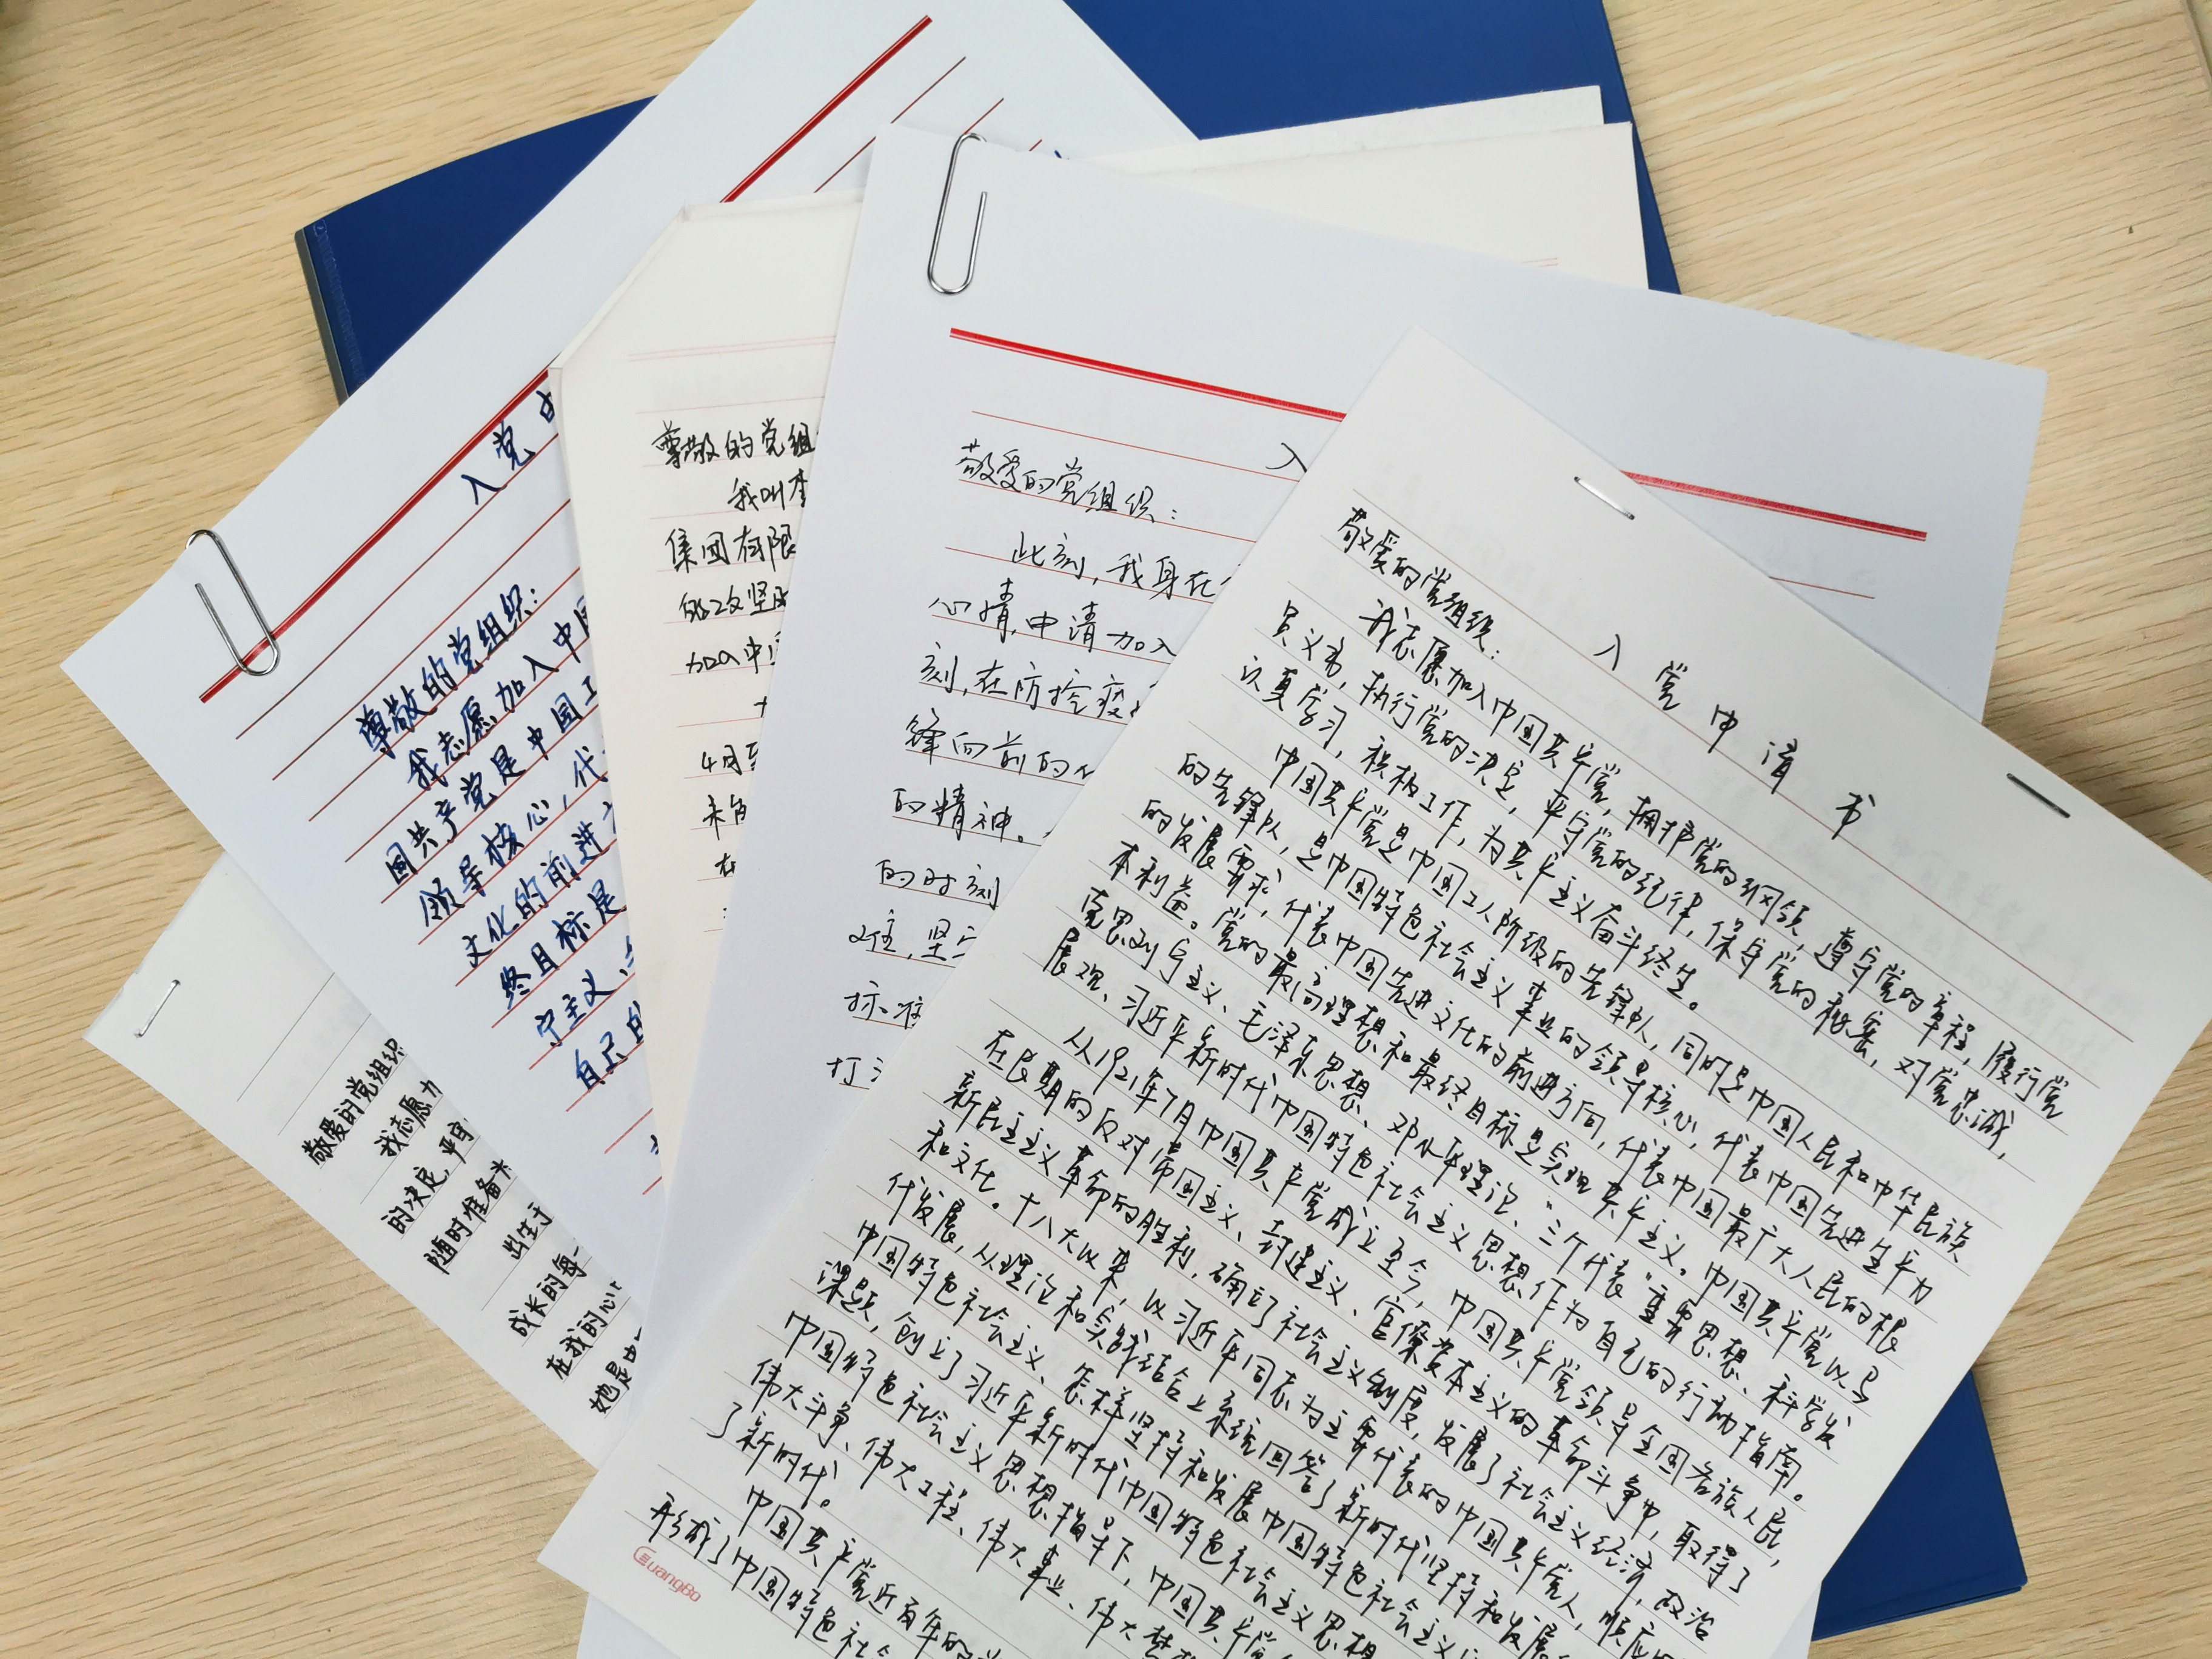 入党申
尊敬的党组织:
我志愿加入中国
国共产党是中国工
领导核心,代
文化的前进方
终目标是
宁主义、
自己的
尊敬的党组
我叫李
集团有限
的攻坚
4月
敬爱的党组织:
此刻,我身在
心情,申请加入
刻,在防控疫
锋向前的
的精神。
的时刻
难,坚
标准
打
入
敬爱的党组织
我志愿力
的决定,严守
随时准备为
出生于
成长的每一
在我的心
她是中
入党申请书
敬爱的党组织:
我志愿加入中国共产党,拥护党的纲领,遵守党的章程,履行党
员义务,执行党的决定,严守党的纪律,保守党的秘密,对党忠诚,
认真学习,积极工作,为共产主义奋斗终生。
中国共产党是中国工人阶级的先锋队,同时是中国人民和中华民族
的先锋队,是中国特色社会主义事业的领导核心,代表中国先进生产力
的发展要求,代表中国先进文化的前进方向,代表中国最广大人民的根
本利益。党的最高理想和最终目标是实现共产主义。中国共产党以马
克思列宁主义、毛泽东思想、邓小平理论、“三个代表”重要思想、科学发
展观、习近平新时代中国特色社会主义思想作为自己的行动指南。
从1921年7月中国共产党成立至今,中国共产党领导全国各族人民,
在长期的反对帝国主义、封建主义、官僚资本主义的革命斗争中,取得了
新民主主义革命的胜利,确立了社会主义制度,发展了社会主义经济,政治
和文化。十八大以来,以习近平同志为主要代表的中国共产党人,顺应
代发展,从理论和实践结合上系统回答了新时代坚持和发展
中国特色社会主义、怎样坚持和发展中国特色社会主义
课题,创立了习近平新时代中国特色社会主义思想
中国特色社会主义思想指导下,中国共产党
伟大斗争、伟大工程、伟大事业、伟大梦想
了新时代。
中国共产党近百年的
形成了中国特色社
GuangBo